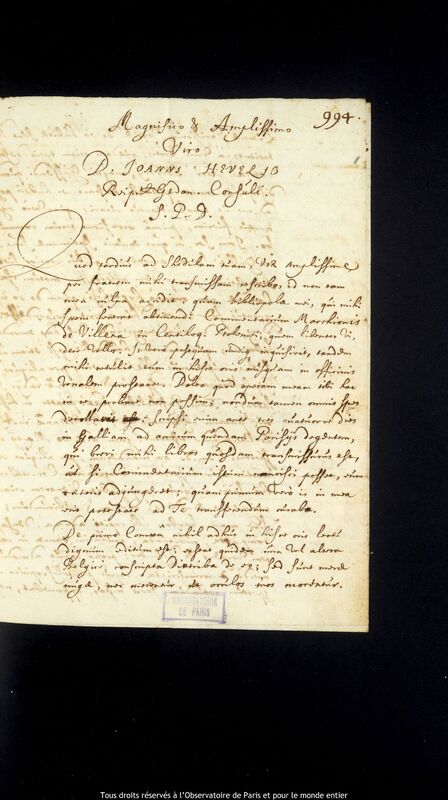 994.
Magnifico & Amplissimo
Viro
D. JOANNI HEVELIO
Reip. Gedan. Consuli
S. P. D.
Quod tardius ad Epistolam tuam, Vir Amplissime
per fratrem mihi transmissam rescribo, id non tam
mea culpa accidit, quam bibliopolæ mei, qui mihi
spem fecerat obtinendi Commentarium Marchionis
de Villena in Centiloq. Ptolemæi, quem libenter vi,
dere velles. Is vero postquam undiq. inquisivit, tandem
mihi retulit eum in hisce oris nusquam in officinis
venalem prostare. Doleo quod operam meam tibi hac
in re probare non possim; nondum tamen omnis spes
scripsi enim ante tres quatuorve dies
in Galliam ad amicum quendam Parisijs degentem,
qui brevi mihi libros quosdam transmissurus est,
ut si Commentarium istum nancisci posset, eum
cæteris adjungeret; quam primum vero is in mea
erit potestate ad Te transferendum curabo.
De primo Cometa nihil adhuc in hisce oris lectu
dignum editum est; extat quidem una vel altera
Belgice conscripta diatriba de eo; sed sunt meræ
nugæ, nec merentur ut oculos tuos morentur.
OBSERVATOIRE
DE PARIS
Tous droits réservés à l'Observatoire de Paris et pour le monde entier